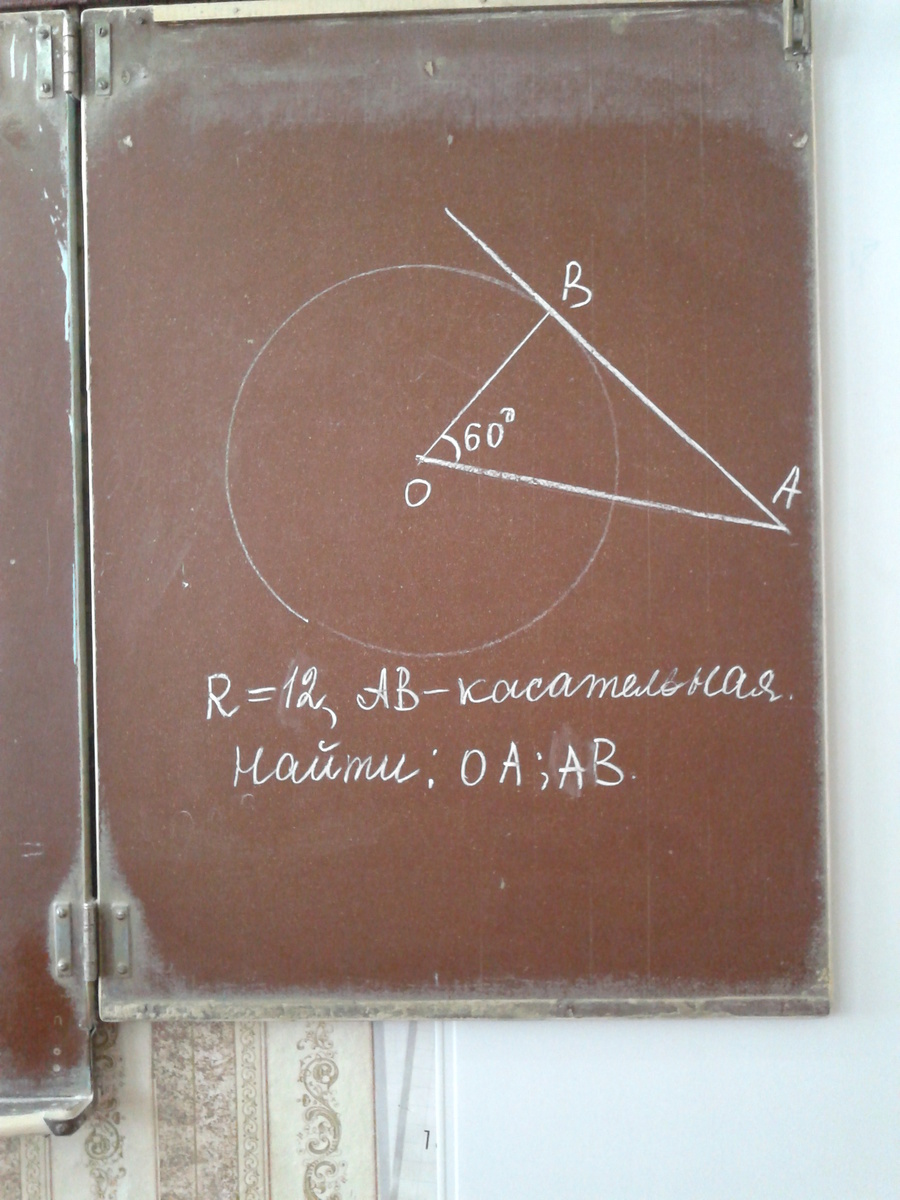 B
60°
O
A
R = 12, AB – касательная.
Найти: OA; AB.
1.